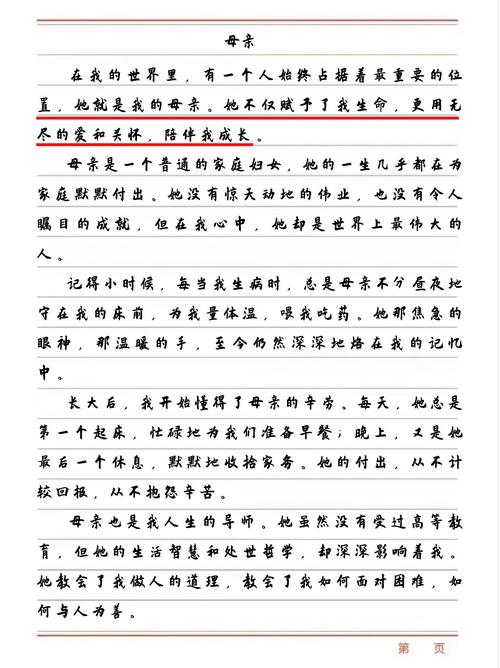 母亲
在我的世界里，有一个人始终占据着最重要的位
置，她就是我的母亲。她不仅赋予了我生命，更用无
尽的爱和关怀，陪伴我成长。
母亲是一个普通的家庭妇女，她的一生几乎都在为
家庭默默付出。她没有惊天动地的伟业，也没有令人
瞩目的成就，但在我心中，她却是世界上最伟大的
人。
记得小时候，每当我生病时，总是母亲不分昼夜地
守在我的床前，为我量体温，喂我吃药。她那焦急的
眼神，那温暖的手，至今仍然深深地烙在我的记忆
中。
长大后，我开始懂得了母亲的辛劳。每天，她总是
第一个起床，忙碌地为我们准备早餐；晚上，又是她
最后一个休息，默默地收拾家务。她的付出，从不计
较回报，从不抱怨辛苦。
母亲也是我人生的导师。她虽然没有受过高等教
育，但她的生活智慧和处世哲学，却深深影响着我。
她教会了我做人的道理，教会了我如何面对困难，如
何与人为善。
第 页